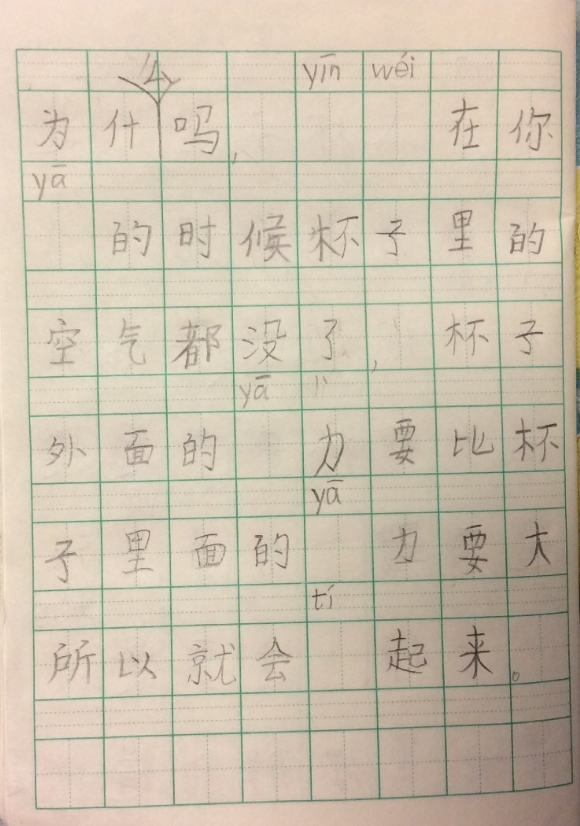 为什么吗, yīn wéi 在你
yā 的时候杯子里的
空气都没了, 杯子
外面的 yā 力要比杯
子里面的 yā 力要大
所以就会 tí 起来。